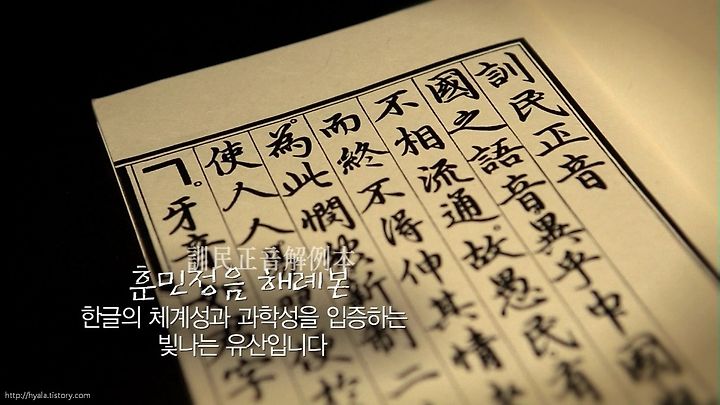 訓民正音
國之語音異乎中國
不相流通故愚民有
而終不得伸其情
為此憫然新制二
使人人便於
ㄱ。牙音字
訓民正音解例本
훈민정음 해례본
한글의 체계성과 과학성을 입증하는
빛나는 유산입니다
http://hyala.tistory.com